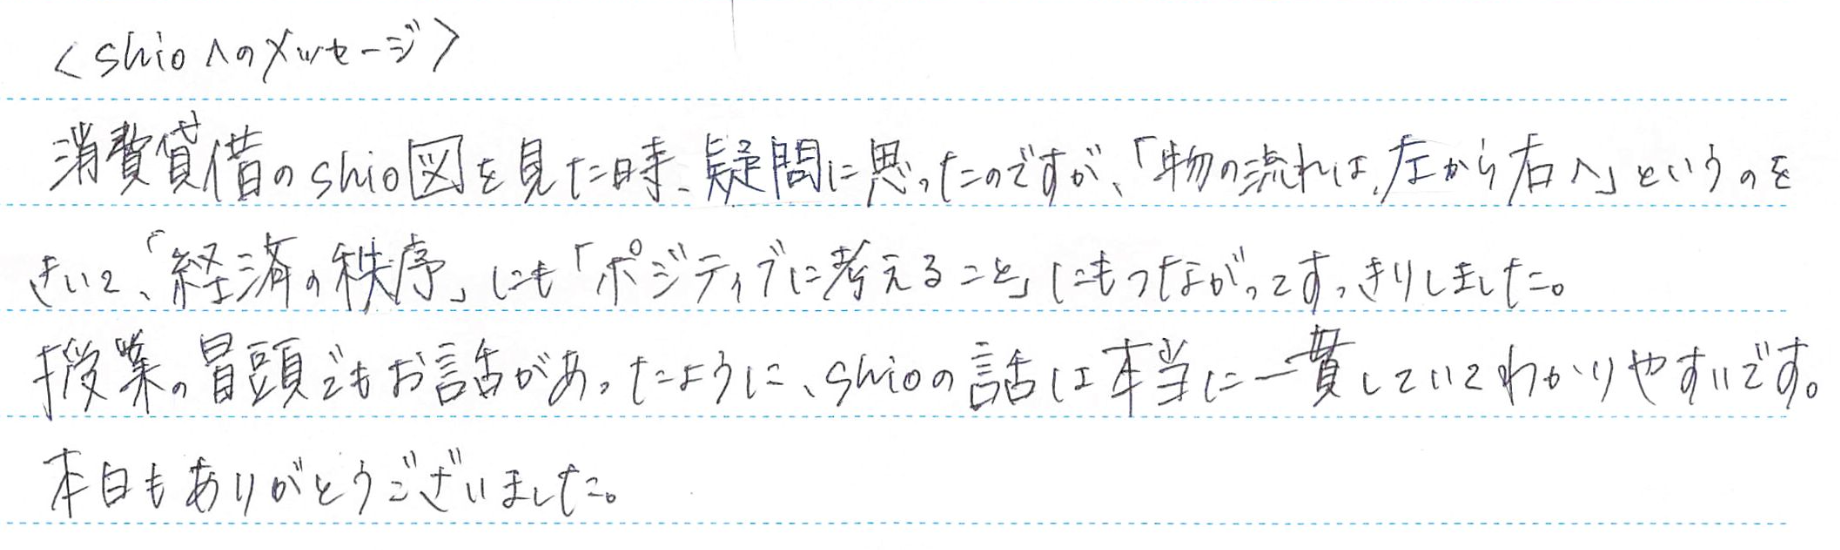 <shioへのメッセージ>
消費貸借のshio図を見た時、疑問に思ったのですが、「物の流れは、左から右へ」というのを
きいて、「経済の秩序」にも「ポジティブに考えること」にもつながってすっきりしました。
授業の冒頭でもお話があったように、shioの話は本当に一貫していてわかりやすいです。
本日もありがとうございました。